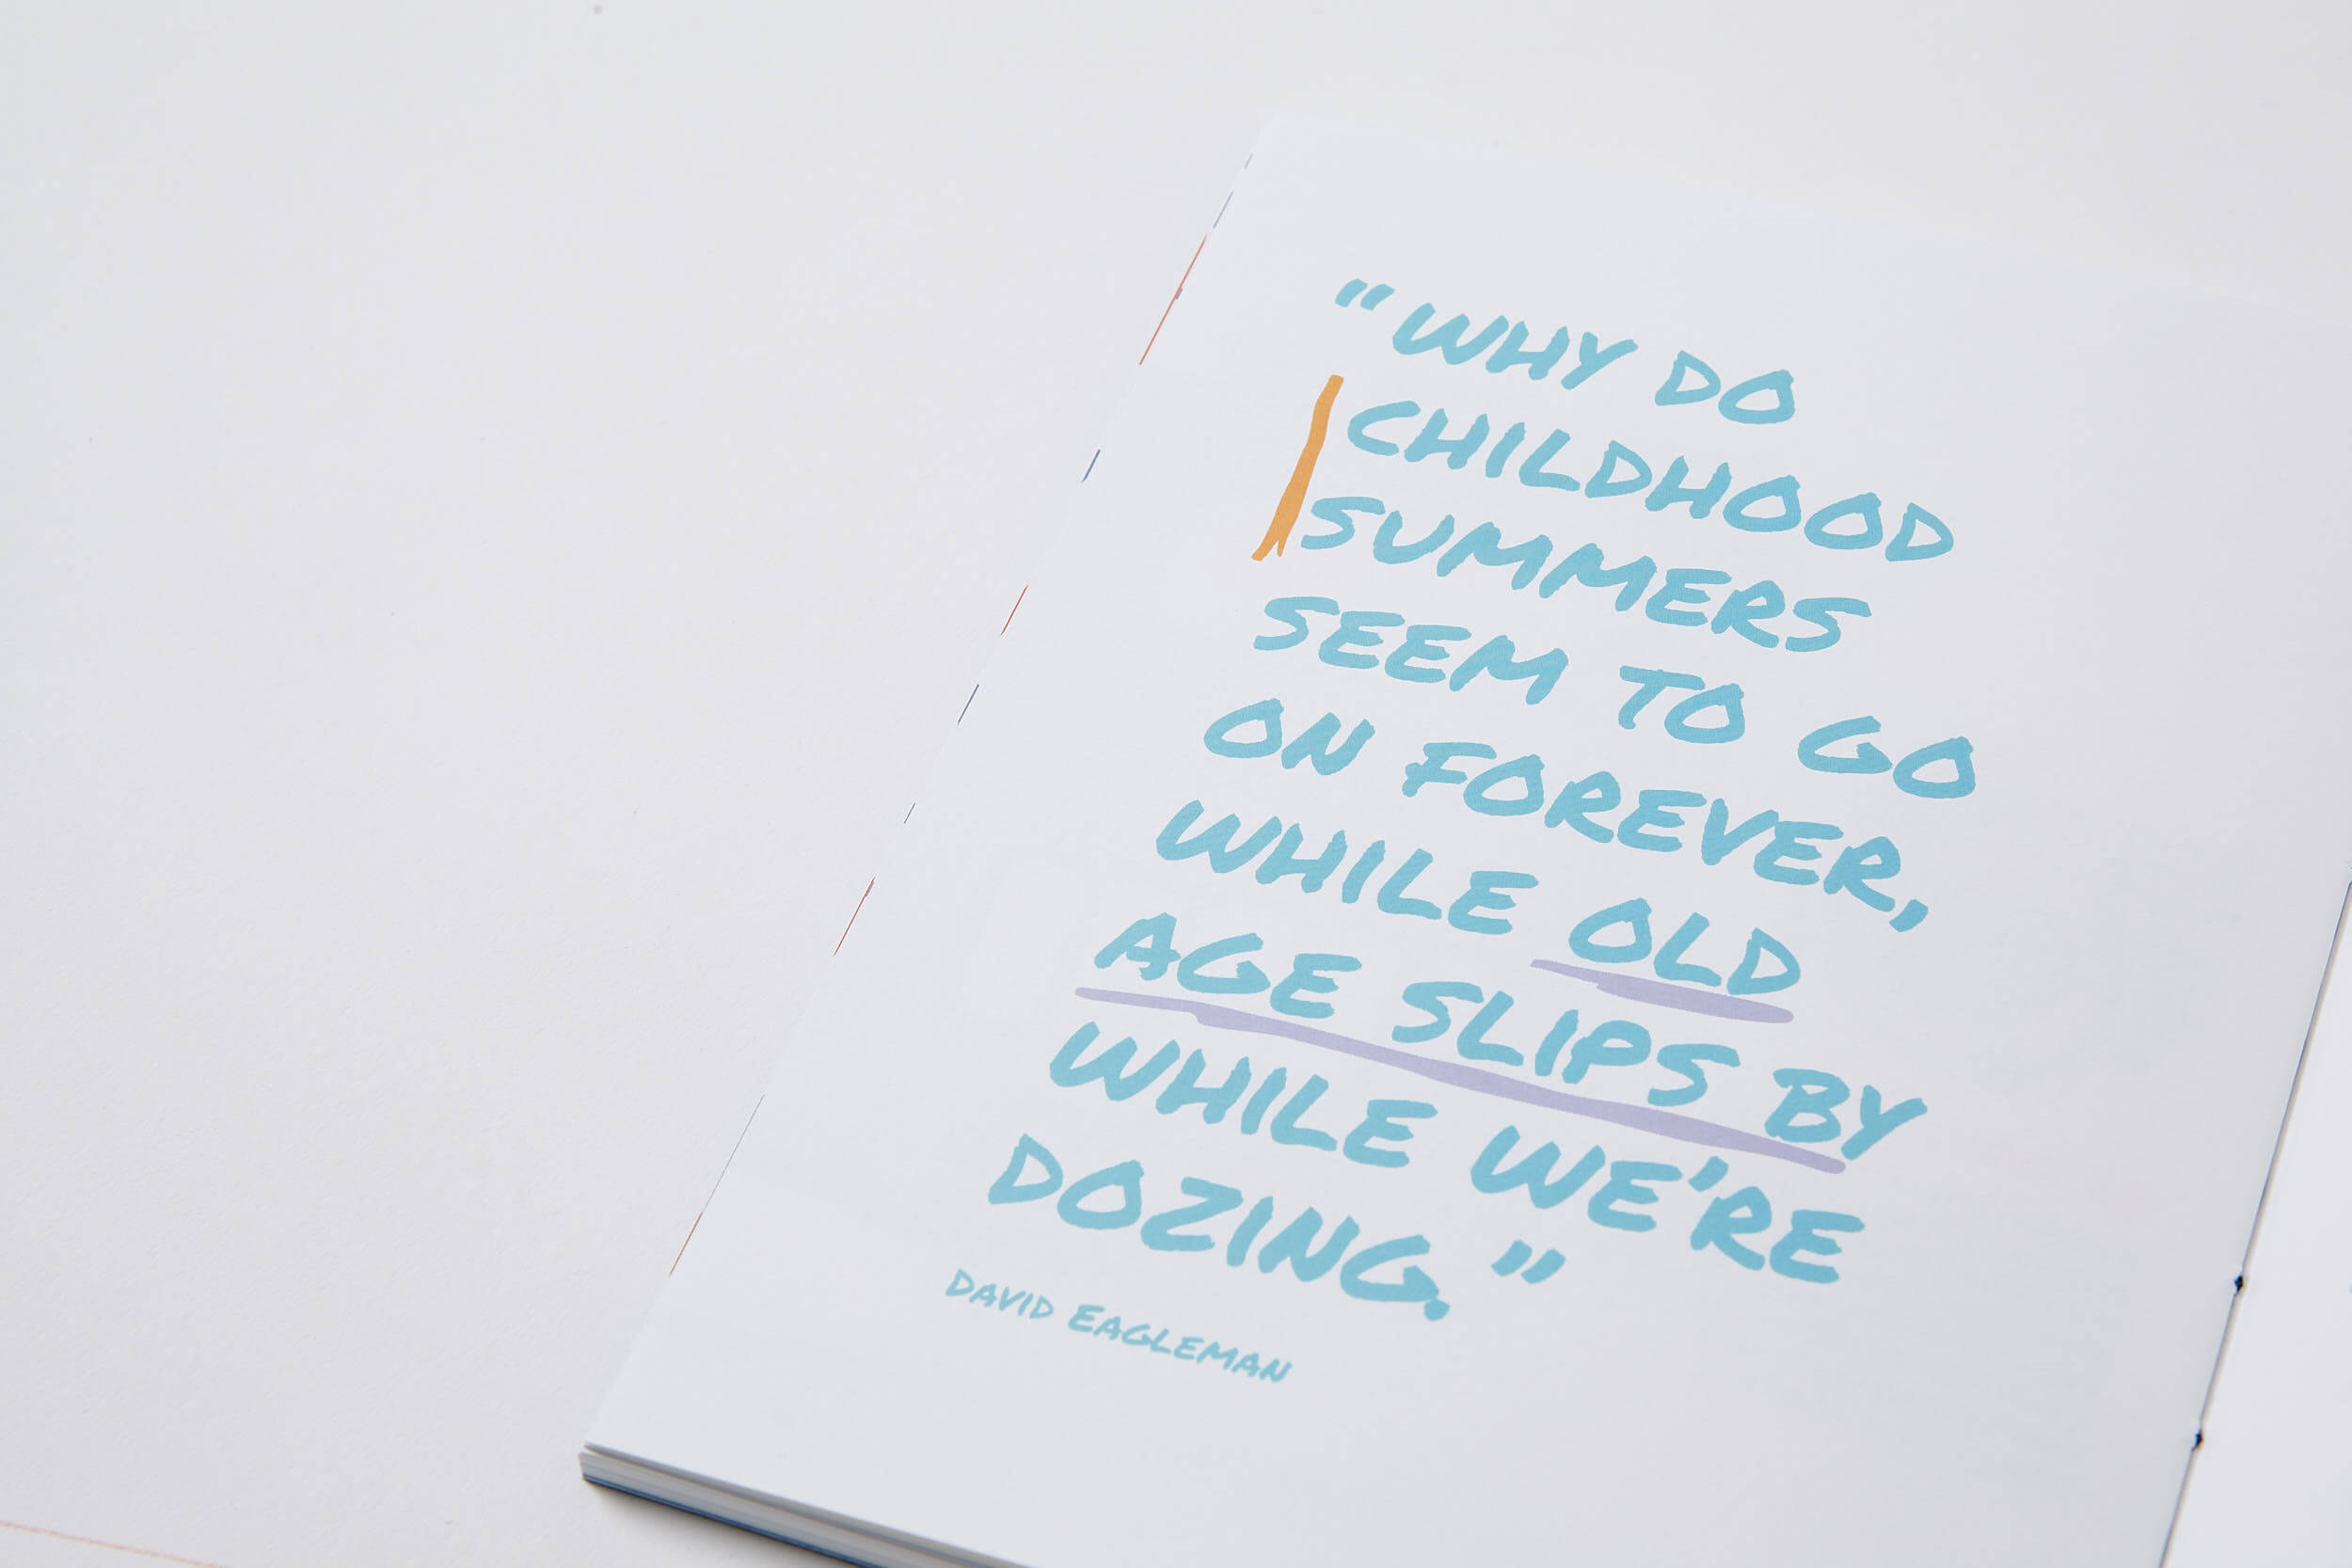 “WHY DO
CHILDHOOD
SUMMERS
SEEM TO GO
ON FOREVER,
WHILE OLD
AGE SLIPS BY
WHILE WE'RE
DOZING.”
DAVID EAGLEMAN